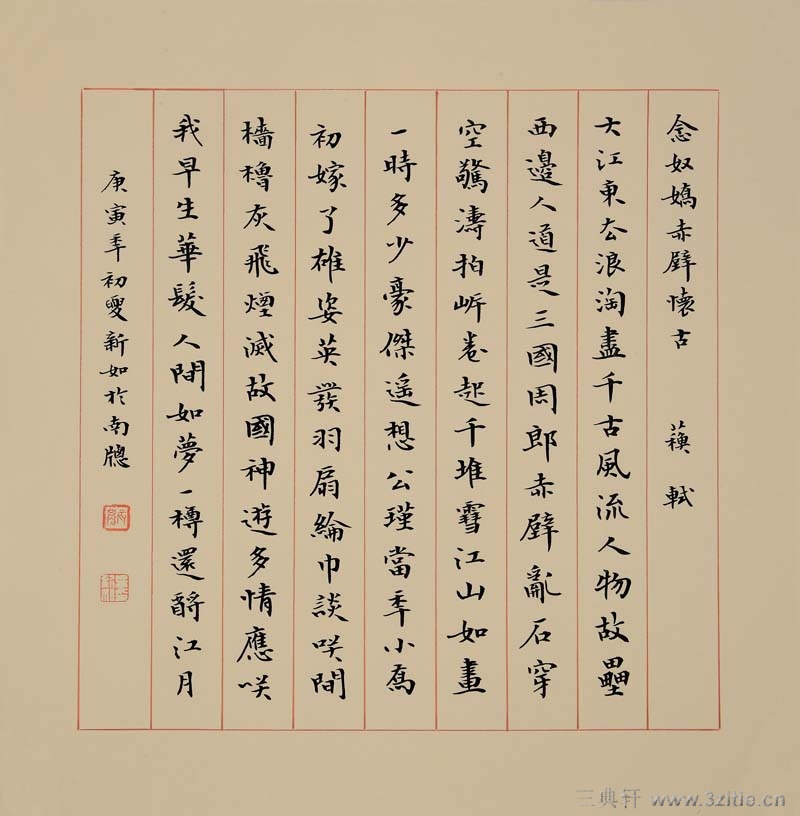 念奴嬌赤壁懷古 蘓軾
大江東去浪淘盡千古風流人物故壘
西邊人道是三國周郎赤壁亂石穿
空驚濤拍岍卷起千堆雪江山如畫
一時多少豪傑遥想公瑾當秊小喬
初嫁了雄姿英發羽扇綸巾談咲間
檣櫓灰飛煙滅故國神遊多情應咲
我早生華髮人間如夢一樽還酹江月
庚寅秊初夏新如於南牕
三典轩 www.3zltie.cn